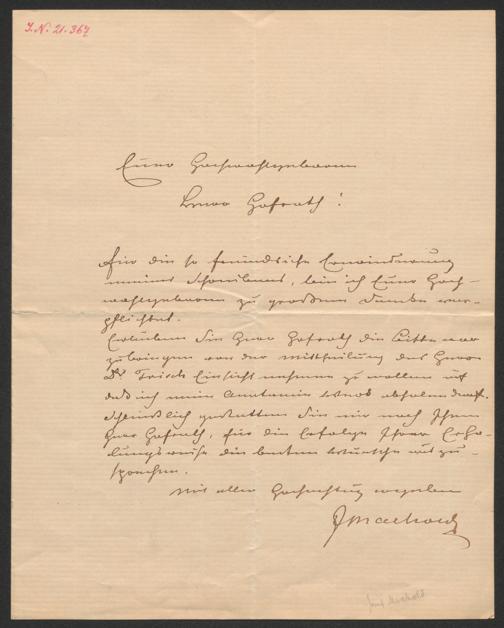 I.N. 21.367
Euer Hochwohlgeboren
Herr Hofrath!
Für die so freundliche Erwiederung
meines Schreibens, bin ich Euer Hoch-
wohlgeboren zu großem Danke ver-
pflichtet.
Erlauben Sie Herr Hofrath die Bitte vor
zubringen von der Mittheilung des Herrn
Dr. Frisch Einsicht nehmen zu wollen und
daß ich mein abholen darf.
Schließlich gestatten Sie mir noch Ihnen
Herr Hofrath, für die Erfolge Ihrer Erho-
lungsreise die besten Wünsche auszu-
sprechen.
Mit aller Hochachtung ergeben
J Machold
Josef Machold